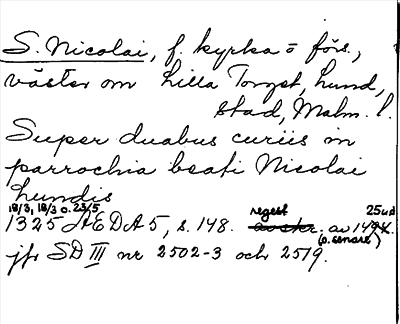 S. Nicolai, f. kyrka o förs.,
väster om Lilla Torget, Lund,
stad, Malm. l.
Super duabus curiis in
parrochia beati Nicolai
Lundis
18/3, 18/3 o. 23/5 regest 25 ud
1325 ÆDA 5, s. 148. avskr. av 1494.
(o. senare)
jfr SD III nr 2502-3 och 2519.